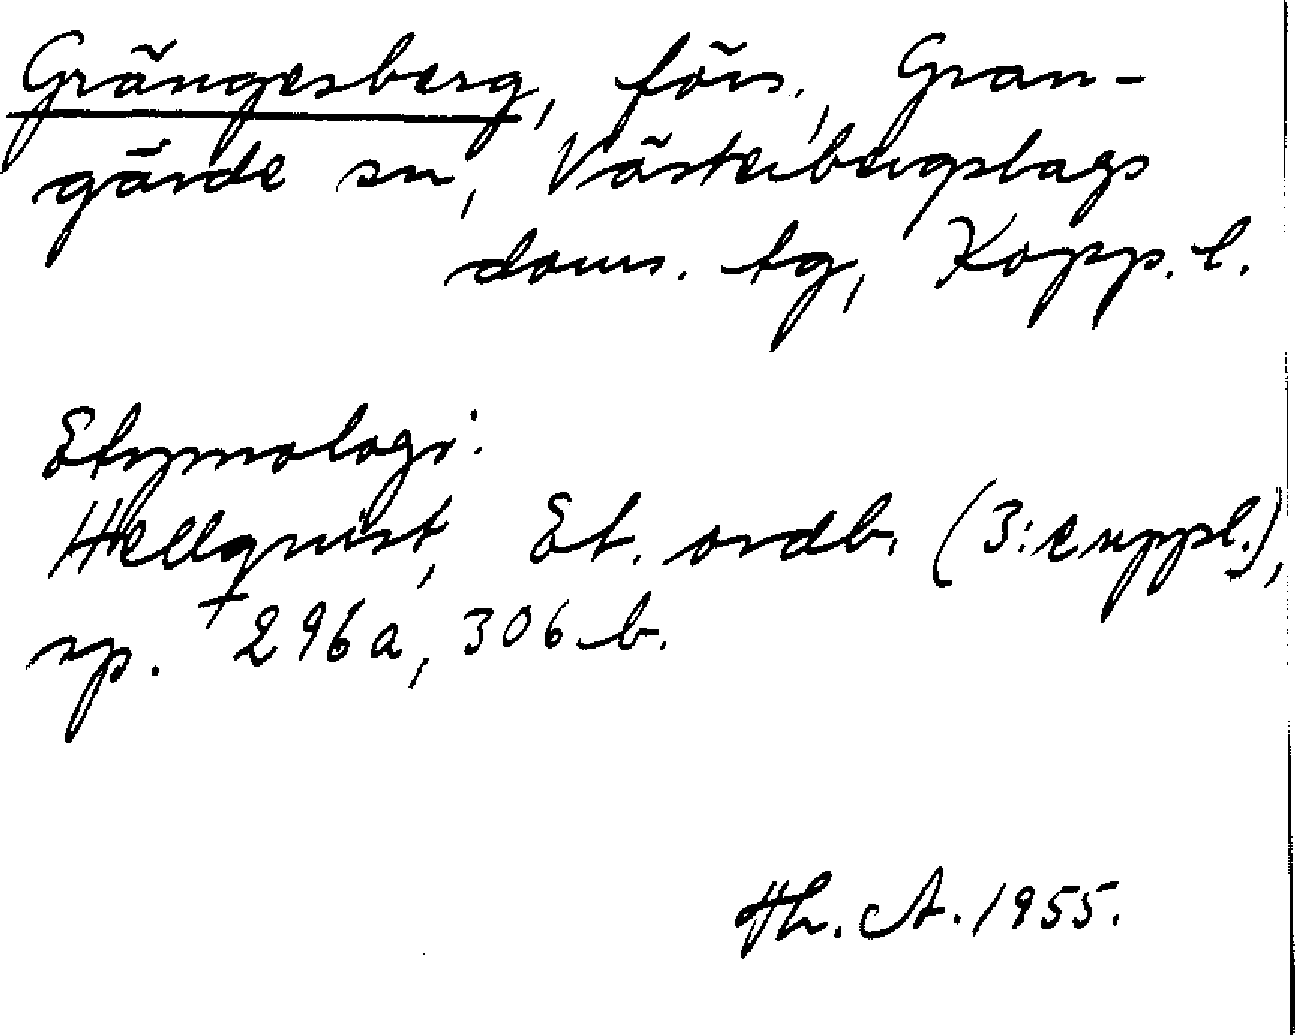 Grängesberg, förs., Gran-
gärde sn, Västerbergslags
doms. tg, Kopp. l.
Etymologi:
Hellqvist, Et. ordb. (3:e uppl.),
sp. 296a, 306b.
Th. A. 1955.